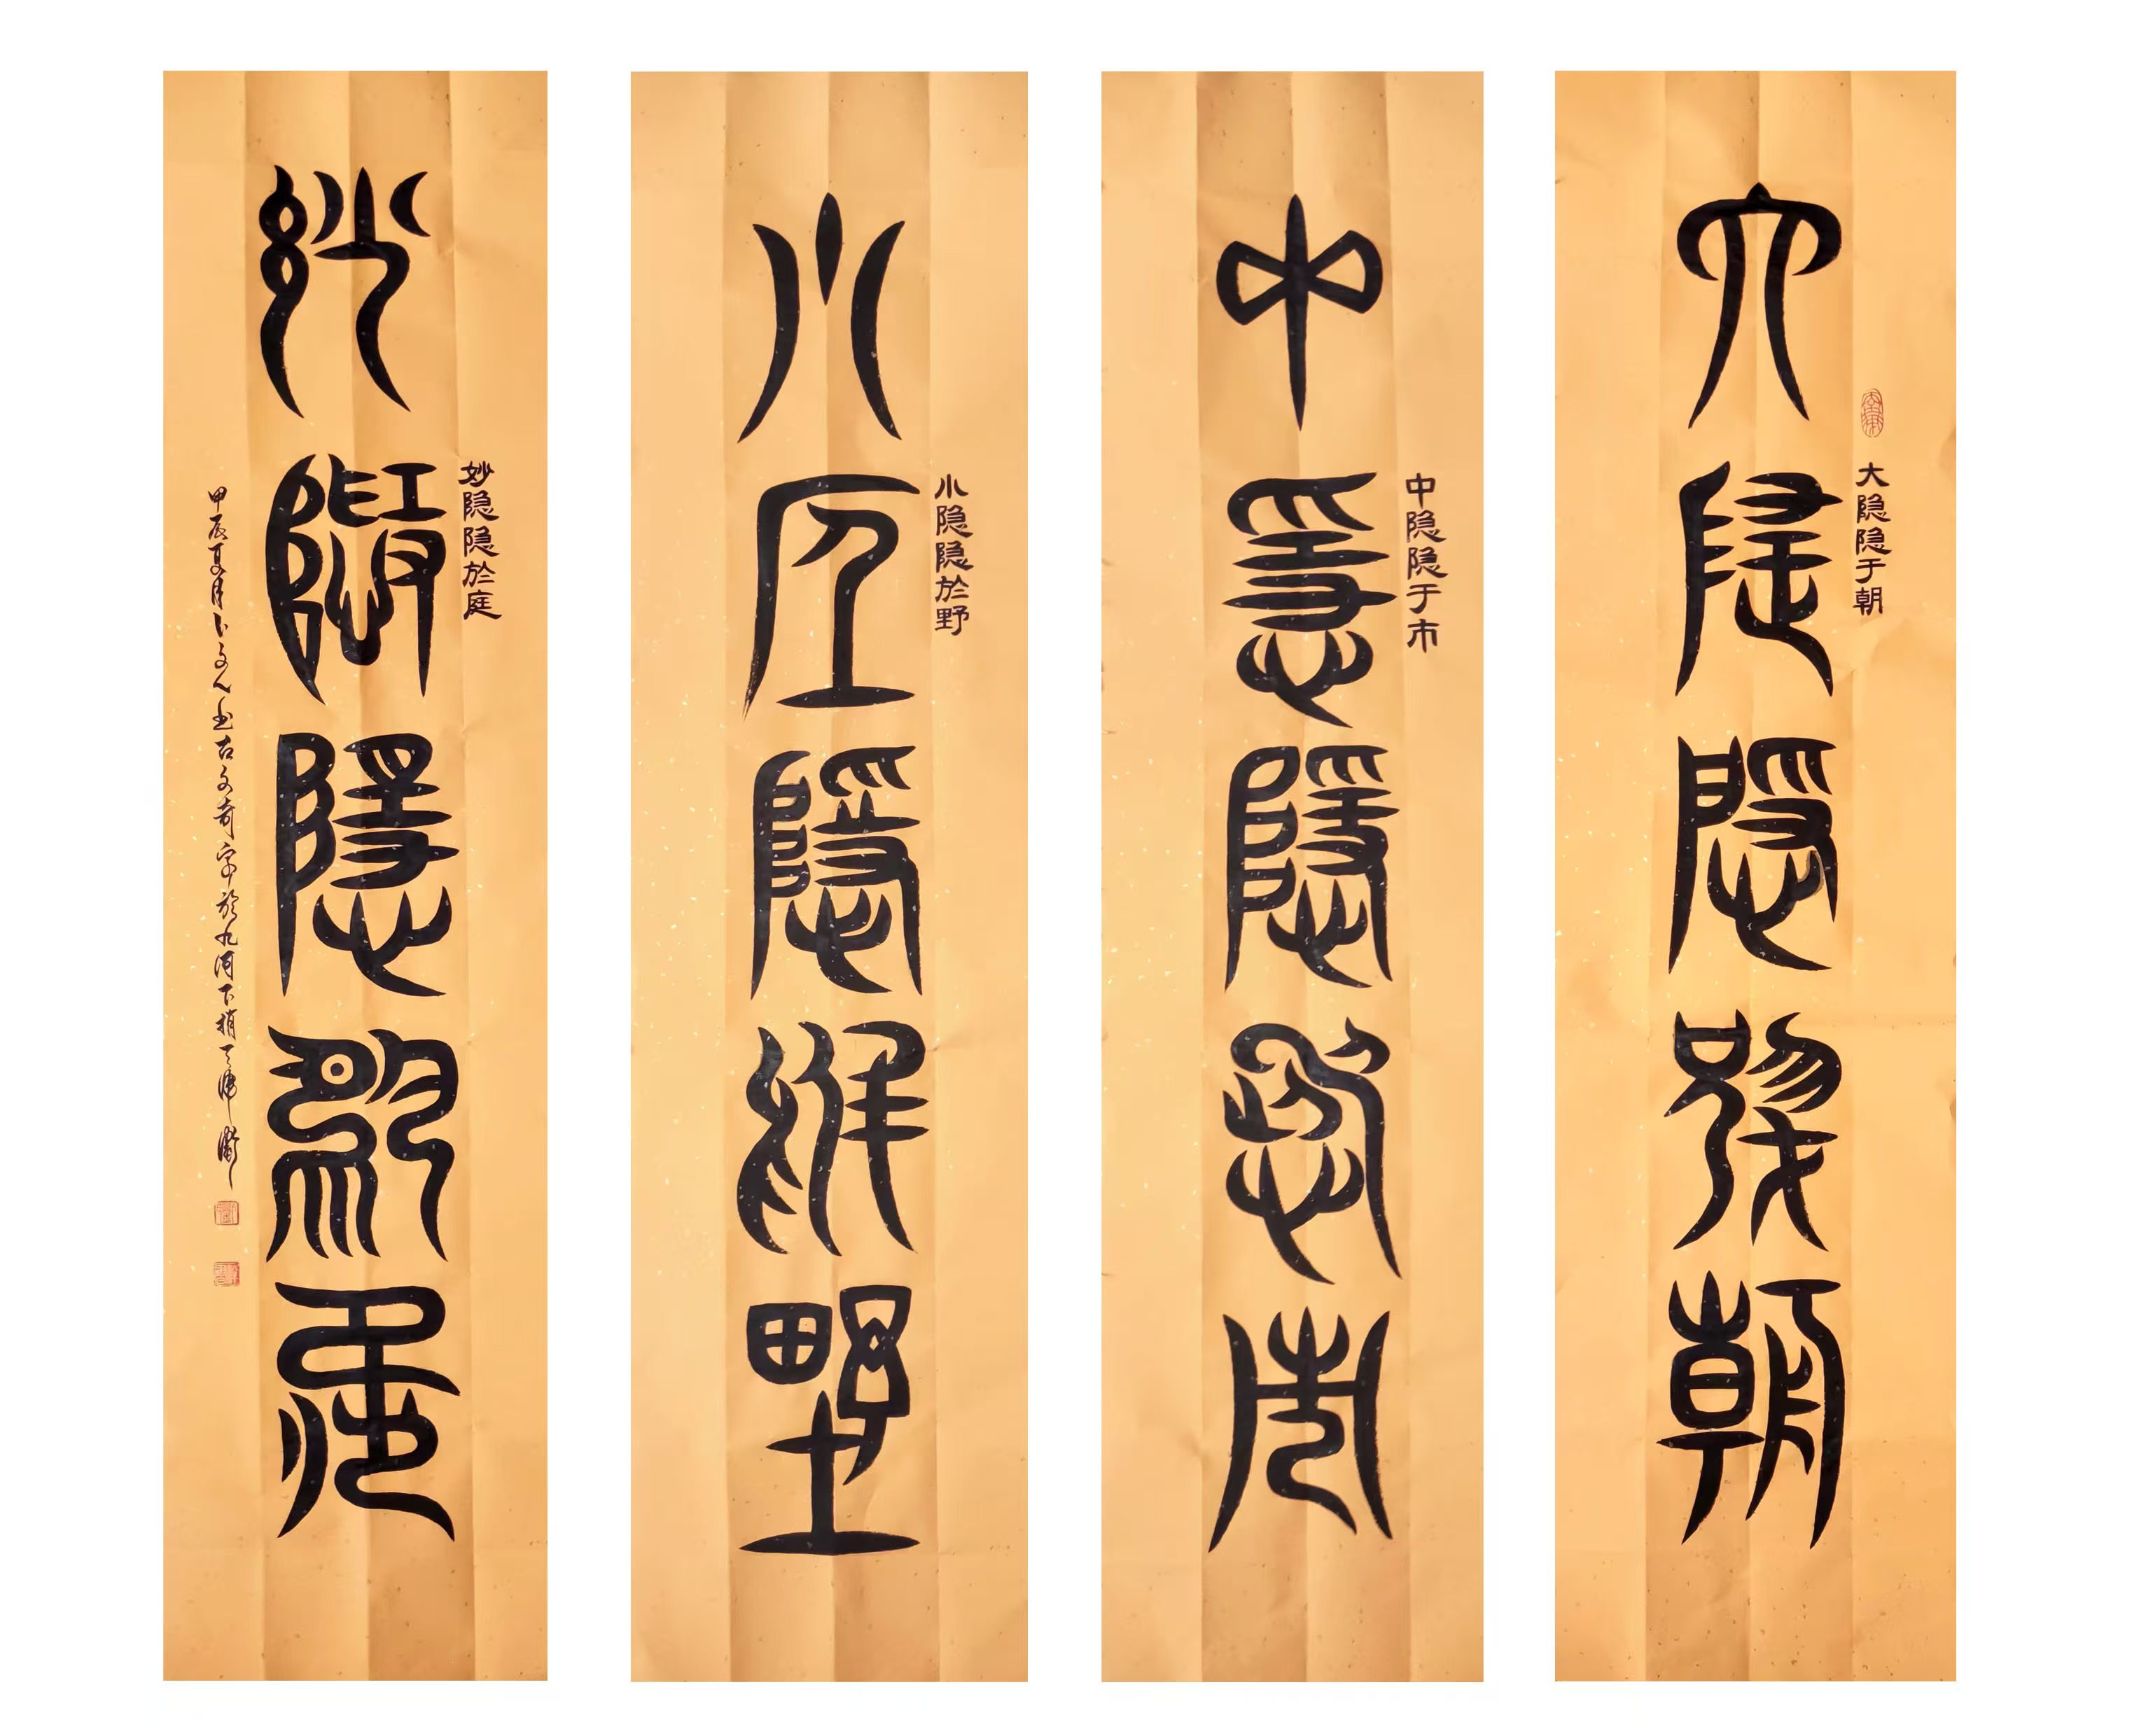 大隐隐於朝
大隐隐于朝
中隐隐於市
中隐隐于市
小隐隐於野
小隐隐於野
妙隐隐於庭
妙隐隐於庭
甲辰夏月卜文人书古文奇字於九河下梢天津卫